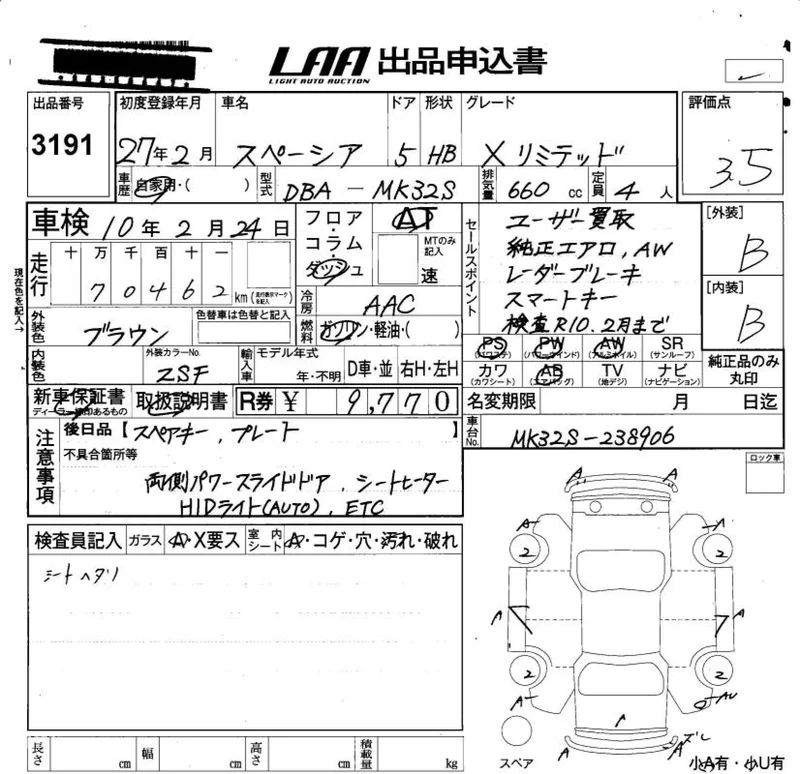 LAA 出品申込書
LIGHT AUTO AUCTION
出品番号
3191
初度登録年月 車名 ドア 形状 グレード
27年2月 スペーシア 5 HB Xリミテッド
評価点
3.5
車歴 自家用・( ) 型式 DBA-MK32S 排気量 660 cc 定員 4 人
車検 10年2月24日
フロア・コラム・ダッシュ
AT
MTのみ記入
速
現在色を記入→
走行 十 万 千 百 十 一
7 0 4 6 2 km (走行表示マークを記入)
冷房 AAC
燃料 ガソリン・軽油・( )
外装色 ブラウン
色替車は色替と記入
内装色
外装カラーNo.
ZSF
輸入車 モデル年式
年・不明 D車・並 右H・左H
セールスポイント
ユーザー買取
純正エアロ,AW
レーダーブレーキ
スマートキー
検査R10.2月まで
[外装]
B
[内装]
B
PS PW AW SR
(パワステ) (パワーウインド) (アルミホイル) (サンルーフ)
カワ AB TV ナビ
(カワシート) (エアバッグ) (地デジ) (ナビゲーション)
純正品のみ丸印
新車保証書
ディーラー捺印あるもの
取扱説明書 R券 ¥ 9,770
名変期限 月 日迄
注意事項
後日品【スペアキー,プレート】
不具合箇所等
両側パワースライドドア,シートヒーター
HIDライト(AUTO),ETC
車台No. MK32S-238906
ロック車
検査員記入 ガラス A・X要ス 室内シート A・コゲ・穴・汚れ・破れ
シートヘタリ
A A
A A
2 2
A A
2 2
A AU
A
A A ズレ
スペア
小A有・小U有
長さ cm 幅 cm 高さ cm 積載量 kg